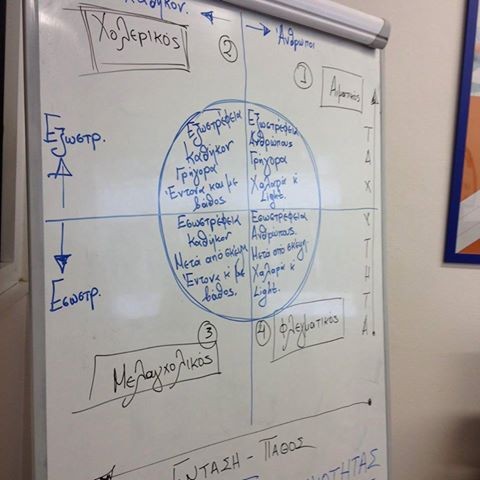 Καθηκον.
Χολερικός
②
Ανθρωποι
①
Αιματικός
Εξωστρ.
Εξωστρέφεια
Καθήκον
Γρήγορα
Έντονα και με
βάθος
Εξωστρέφεια
Ανθρώπους
Γρήγορα
Χαλαρά κ
Light.
Εσωστρέφεια
Καθήκον
Μετά από σκέψη
Έντονα κ με
βάθος.
Εσωστρέφεια
Ανθρώπους.
Μετά από σκέψη.
Χαλαρά κ
Light.
Εσωστρ.
ΤΑΧΥΤΗΤΑ
③
Μελαγχολικός
④
Φλεγματικός
ΕΝΤΑΣΗ - ΠΑΘΟΣ